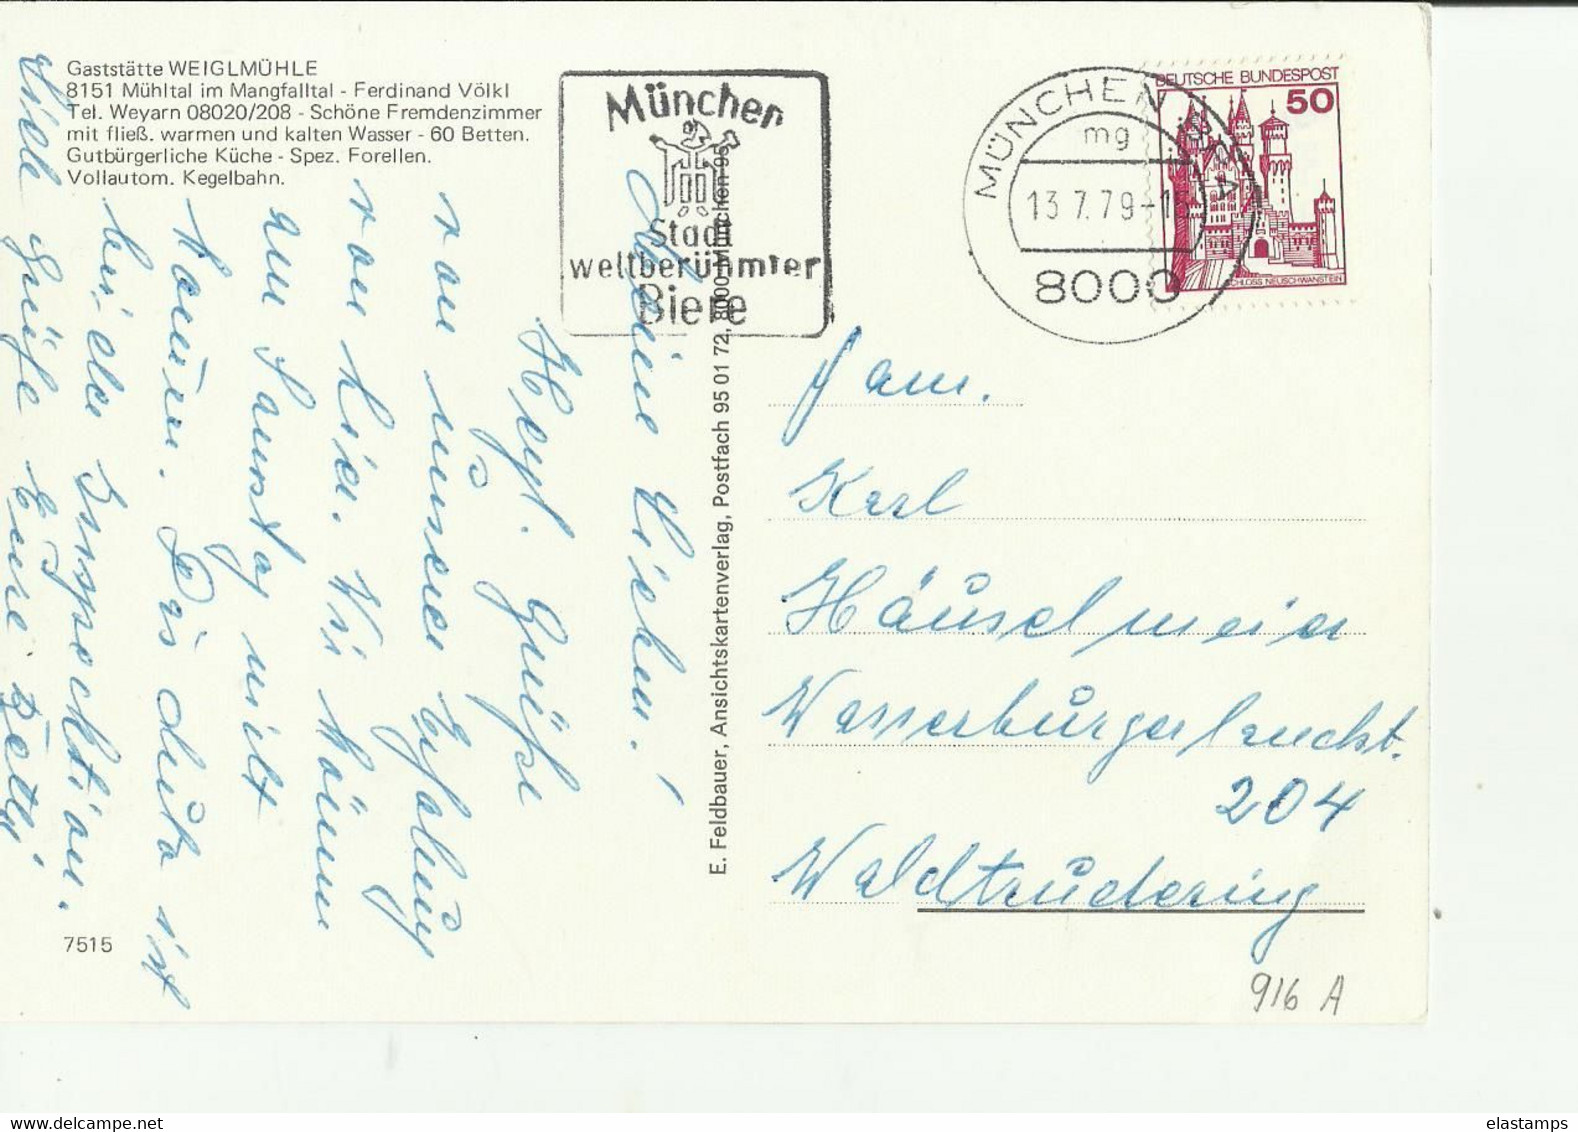 Gaststätte WEIGLMÜHLE
8151 Mühltal im Mangfalltal - Ferdinand Völkl
Tel. Weyarn 08020/208 - Schöne Fremdenzimmer
mit fließ. warmen und kalten Wasser - 60 Betten.
Gutbürgerliche Küche - Spez. Forellen.
Vollautom. Kegelbahn.
München
Stadt
weltberühmter
Biere
MÜNCHEN
mg
13.7.79-15
8000
DEUTSCHE BUNDESPOST
50
SCHLOSS NEUSCHWANSTEIN
Meine Lieben!
Herzl. Grüße
von unserer Erholung
von hier. Wir können
am Samstag nicht
kommen. Das Auto ist
bei der Inspecktion.
Viele Grüße Eure Betti
E. Feldbauer, Ansichtskartenverlag, Postfach 95 01 72, 8000 München 95
Fam.
Karl
Häuselmeier
Wasserburgerlandst.
204
Waldtrudering
7515
916 A
elastamps